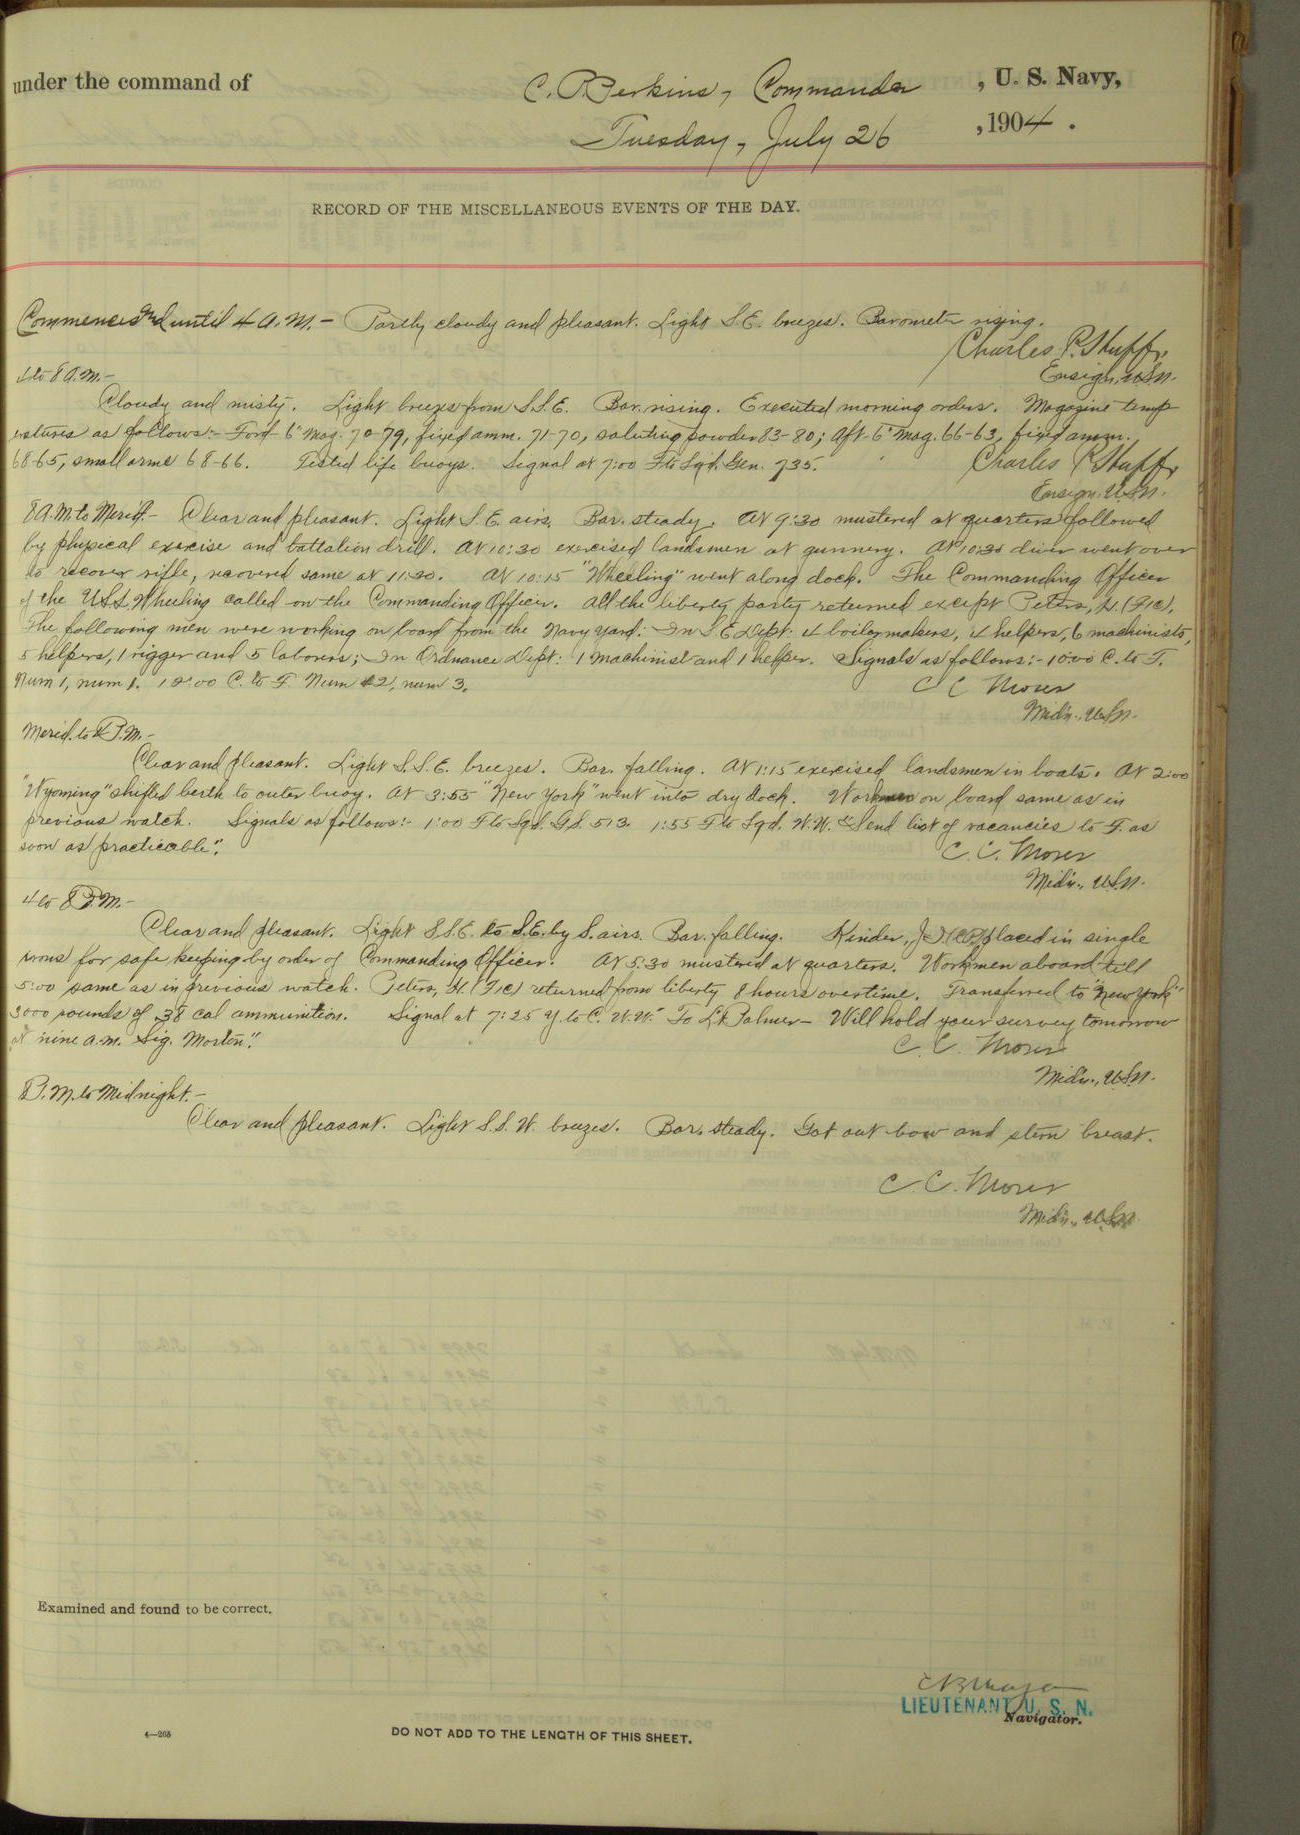 under the command of C. P. Perkins, Commander, U. S. Navy,
Tuesday, July 26, 1904.
RECORD OF THE MISCELLANEOUS EVENTS OF THE DAY.
Commences and until 4 A.M.- Partly cloudy and pleasant. Light S.E. breezes. Barometer rising.
Charles P. Huff,
Ensign, USN.
4 to 8 A.M.-
Cloudy and misty. Light breezes from S.S.E. Bar. rising. Executed morning orders. Magazine temp
eratures as follows:- For'd 6" mag. 70-79, fixed amm. 71-70, saluting powder 83-80; Aft 6" mag. 66-63, fixed amm.
68-65, small arms 68-66. Tested life buoys. Signal at 7:00 F to Sqd. Gen. 735.
Charles P. Huff,
Ensign USN.
8 A.M. to Merid.- Clear and pleasant. Light S.E. airs. Bar. steady. At 9:30 mustered at quarters followed
by physical exercise and battalion drill. At 10:30 exercised landsmen at gunnery. At 10:30 diver went over
to recover rifle, recovered same at 11:30. At 10:15 "Wheeling" went along dock. The Commanding Officer
of the U.S.S. Wheeling called on the Commanding Officer. All the liberty party returned except Peters, H. (F1c).
The following men were working on board from the Navy Yard: In S.E. Dept: 4 boilermakers, 4 helpers, 6 machinists,
5 helpers, 1 rigger and 5 laborers; In Ordnance Dept: 1 machinist and 1 helper. Signals as follows:- 10:00 C. to F.
Num 1, num 1. 12:00 C. to F. Num 2, num 3.
C C Moser
Mid'n., USN.
Merid. to P.M.-
Clear and pleasant. Light S.S.E. breezes. Bar. falling. At 1:15 exercised landsmen in boats. At 2:00
"Wyoming" shifted berth to outer buoy. At 3:55 "New York" went into dry dock. Workmen on board same as in
previous watch. Signals as follows:- 1:00 F to Sqd. G.S. 513. 1:55 F to Sqd. W.W. "Send list of vacancies to F. as
soon as practicable".
C. C. Moser
Mid'n., USN.
4 to 8 P.M.-
Clear and pleasant. Light S.S.E. to S.E. by S. airs. Bar. falling. Kinder, placed in single
irons for safe keeping by order of Commanding Officer. At 5:30 mustered at quarters. Workmen aboard till
5:00 same as in previous watch. Peters, H. (F1c) returned from liberty 8 hours overtime. Transferred to "New York"
3000 rounds of .38 cal ammunition. Signal at 7:25 Y. to C. W.W. "To Lt. Palmer- Will hold your survey tomorrow
at nine a.m. Sig. Morton".
C. C. Moser
Mid'n., USN.
8 P.M. to Midnight.-
Clear and pleasant. Light S.S.W. breezes. Bar. steady. Got out bow and stern breast.
C. C. Moser
Mid'n., USN
Examined and found to be correct.
LIEUTENANT U. S. N.
Navigator.
4—265
DO NOT ADD TO THE LENGTH OF THIS SHEET.